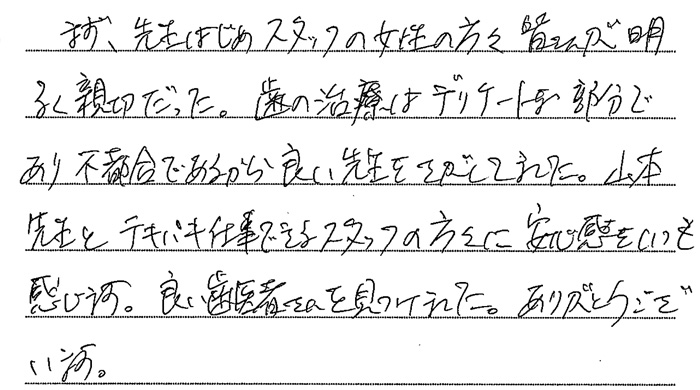 まず、先生はじめスタッフの女性の方々皆さんが明
るく親切だった。歯の治療はデリケートな部分で
あり不都合であるから良い先生をさがしてました。山本
先生とテキパキ仕事できるスタッフの方々に安心感をいつも
感じます。良い歯医者さんを見つけました。ありがとうござ
います。